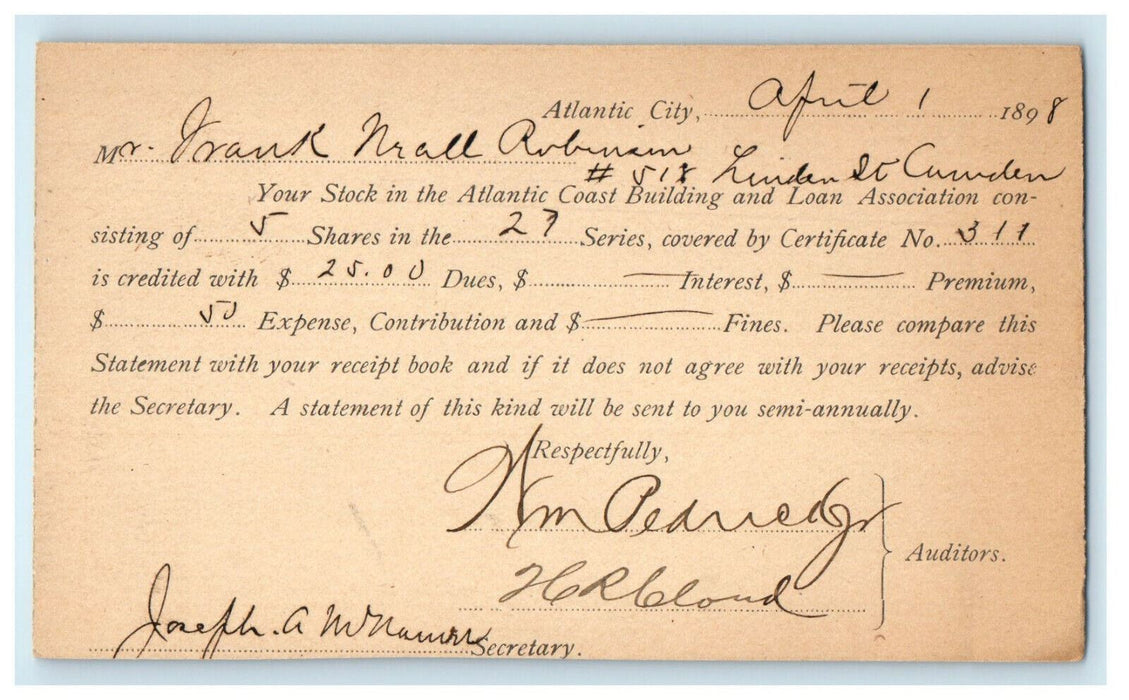 Atlantic City, April 1 1898
Mr. Frank Neall Robinson
# 518 Linden St Camden
Your Stock in the Atlantic Coast Building and Loan Association con-
sisting of 5 Shares in the 27 Series, covered by Certificate No. 311
is credited with $ 25.00 Dues, $ — Interest, $ — Premium,
$ 50 Expense, Contribution and $ — Fines. Please compare this
Statement with your receipt book and if it does not agree with your receipts, advise
the Secretary. A statement of this kind will be sent to you semi-annually.
Respectfully,
Wm Pedrick Jr
Auditors.
H R Cloud
Joseph. A McNamee
Secretary.